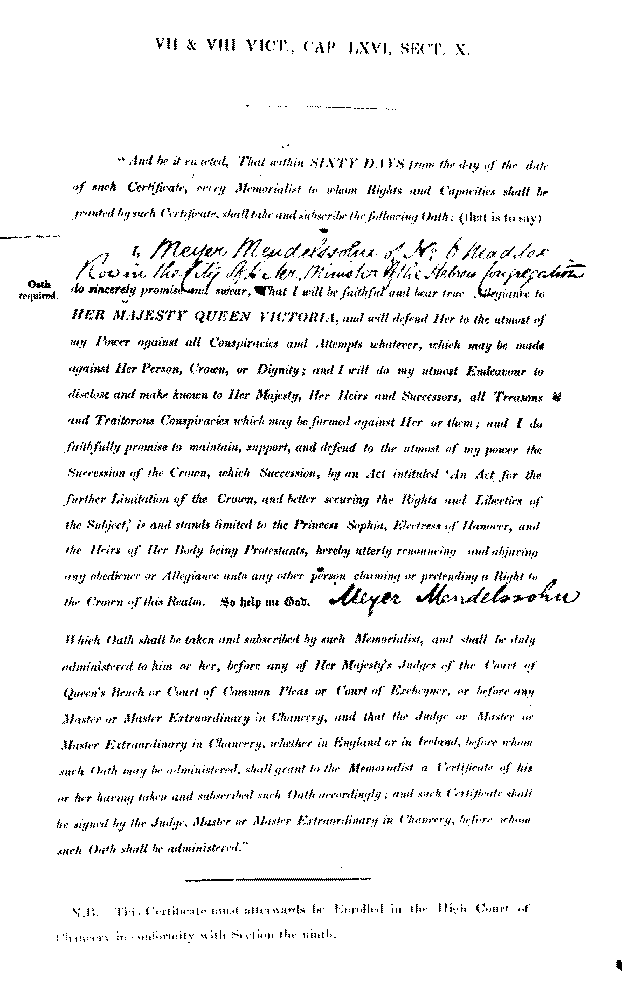 VII & VIII VICT., CAP. LXVI, SECT. X.
"And be it enacted, That within SIXTY DAYS from the day of the date
of such Certificate, every Memorialist to whom Rights and Capacities shall be
granted by such Certificate, shall take and subscribe the following Oath: (that is to say)
I, Meyer Mendelssohn of No 6 Maddox
Row in the City of Exeter, Minister of the Hebrew Congregation
Oath
required.
do sincerely promise and swear, That I will be faithful and bear true Allegiance to
HER MAJESTY QUEEN VICTORIA, and will defend Her to the utmost of
my Power against all Conspiracies and Attempts whatever, which may be made
against Her Person, Crown, or Dignity; and I will do my utmost Endeavour to
disclose and make known to Her Majesty, Her Heirs and Successors, all Treasons
and Traitorous Conspiracies which may be formed against Her or them; and I do
faithfully promise to maintain, support, and defend to the utmost of my power the
Succession of the Crown, which Succession, by an Act intituled 'An Act for the
further Limitation of the Crown, and better securing the Rights and Liberties of
the Subject,' is and stands limited to the Princess Sophia, Electress of Hanover, and
the Heirs of Her Body being Protestants, hereby utterly renouncing and abjuring
any obedience or Allegiance unto any other person claiming or pretending a Right to
the Crown of this Realm. So help me God. Meyer Mendelssohn
Which Oath shall be taken and subscribed by such Memorialist, and shall be duly
administered to him or her, before any of Her Majesty's Judges of the Court of
Queen's Bench or Court of Common Pleas or Court of Exchequer, or before any
Master or Master Extraordinary in Chancery, and that the Judge or Master or
Master Extraordinary in Chancery, whether in England or in Ireland, before whom
such Oath may be administered, shall grant to the Memorialist a Certificate of his
or her having taken and subscribed such Oath accordingly; and such Certificate shall
be signed by the Judge, Master or Master Extraordinary in Chancery, before whom
such Oath shall be administered."
N.B. This Certificate must afterwards be Enrolled in the High Court of
Chancery in conformity with Section the ninth.